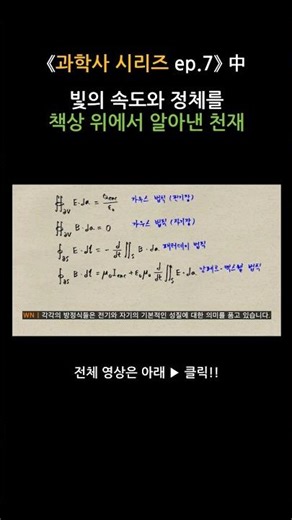 《과학사 시리즈 ep.7》 中
빛의 속도와 정체를
책상 위에서 알아낸 천재
∯∂V E·da = Qenc/ε₀ 가우스 법칙 (전기장)
∯∂V B·da = 0 가우스 법칙 (자기장)
∮∂S E·dl = - d/dt ∬S B·da 패러데이 법칙
∮∂S B·dl = μ₀Ienc + ε₀μ₀ d/dt ∬S E·da 앙페르-맥스웰 법칙
WN | 각각의 방정식들은 전기와 자기의 기본적인 성질에 대한 의미를 품고 있습니다.
전체 영상은 아래 ▶ 클릭!!